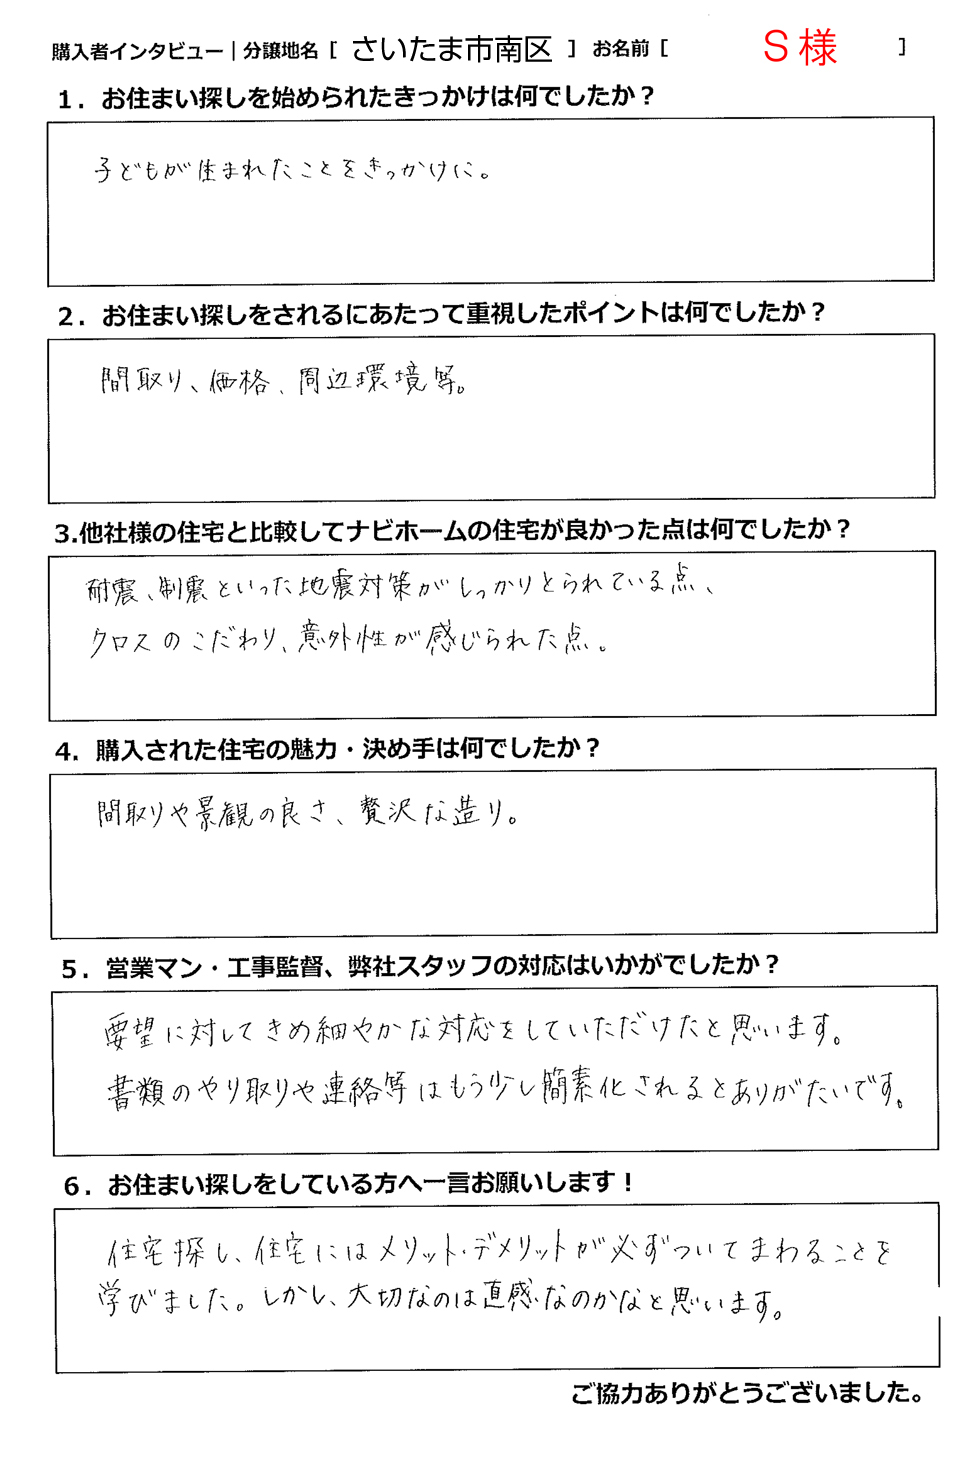 購入者インタビュー｜分譲地名［ さいたま市南区 ］ お名前［ S様 ］
1．お住まい探しを始められたきっかけは何でしたか？
子どもが生まれたことをきっかけに。
2．お住まい探しをされるにあたって重視したポイントは何でしたか？
間取り、価格、周辺環境等。
3.他社様の住宅と比較してナビホームの住宅が良かった点は何でしたか？
耐震、制震といった地震対策がしっかりとられている点、
クロスのこだわり、意外性が感じられた点。
4．購入された住宅の魅力・決め手は何でしたか？
間取りや景観の良さ、贅沢な造り。
5．営業マン・工事監督、弊社スタッフの対応はいかがでしたか？
要望に対してきめ細やかな対応をしていただけたと思います。
書類のやり取りや連絡等はもう少し簡素化されるとありがたいです。
6．お住まい探しをしている方へ一言お願いします！
住宅探し、住宅にはメリット・デメリットが必ずついてまわることを
学びました。しかし、大切なのは直感なのかなと思います。
ご協力ありがとうございました。